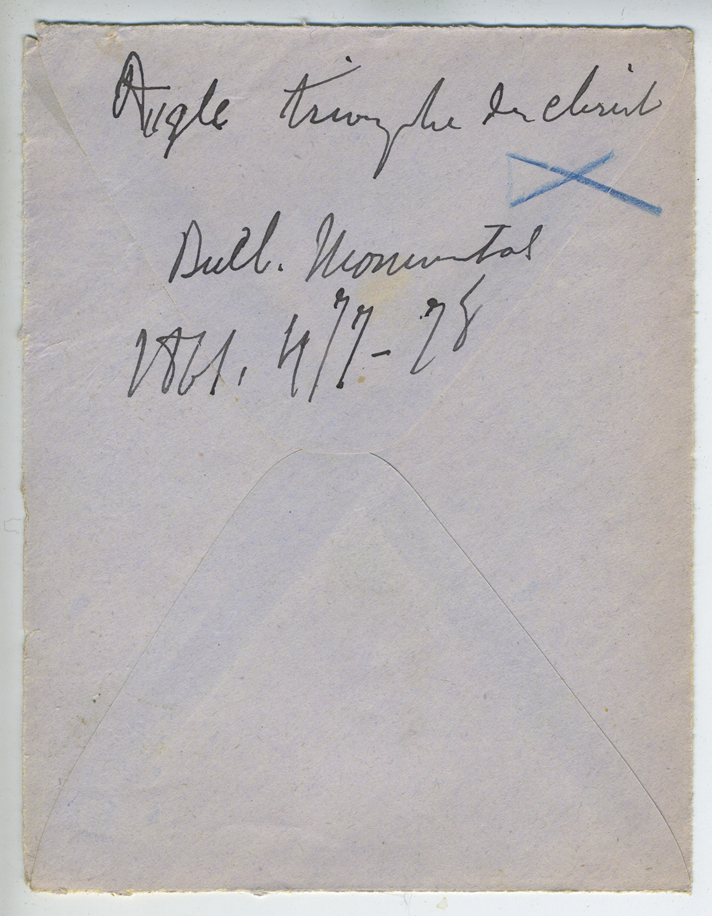 Aigle triomphe du Christ
Bull. Monumental
1861. 477-78